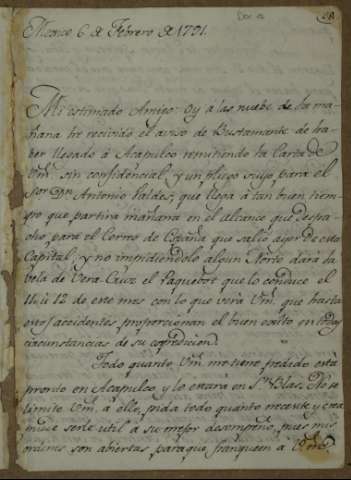 Mexico 6 de Febrero de 1791.
Mi estimado Amigo: Oy á las nueve de la ma-
ñana he recivido el aviso de Bustamante de ha-
ver llegado á Acapulco remitiendo la Carta de
Vm. sin confidencial, y un pliego suyo para el
Sor. Dn. Antonio Valdes, que llega á tan buen tiem-
po que partira mañana en el alcance que despa-
cho para el Correo de España que salió ayer de esta
Capital, y no impidiendolo algun Norte dará la
vela de Vera Cruz el Paquebot que lo conduce el
11 ú 12 de este mes con lo que verá Vm. que hasta
estos accidentes proporcionan el buen exito en todas
circunstancias de su expedicion.
Todo quanto Vm. me tiene pedido está
pronto en Acapulco, y lo estará en Sn. Blas. No se
limite Vm. á ello, pida todo quanto necesite y crea
puede serle util á su mejor desempeño, pues mis
manos son abiertas para que franqueen á Vm.